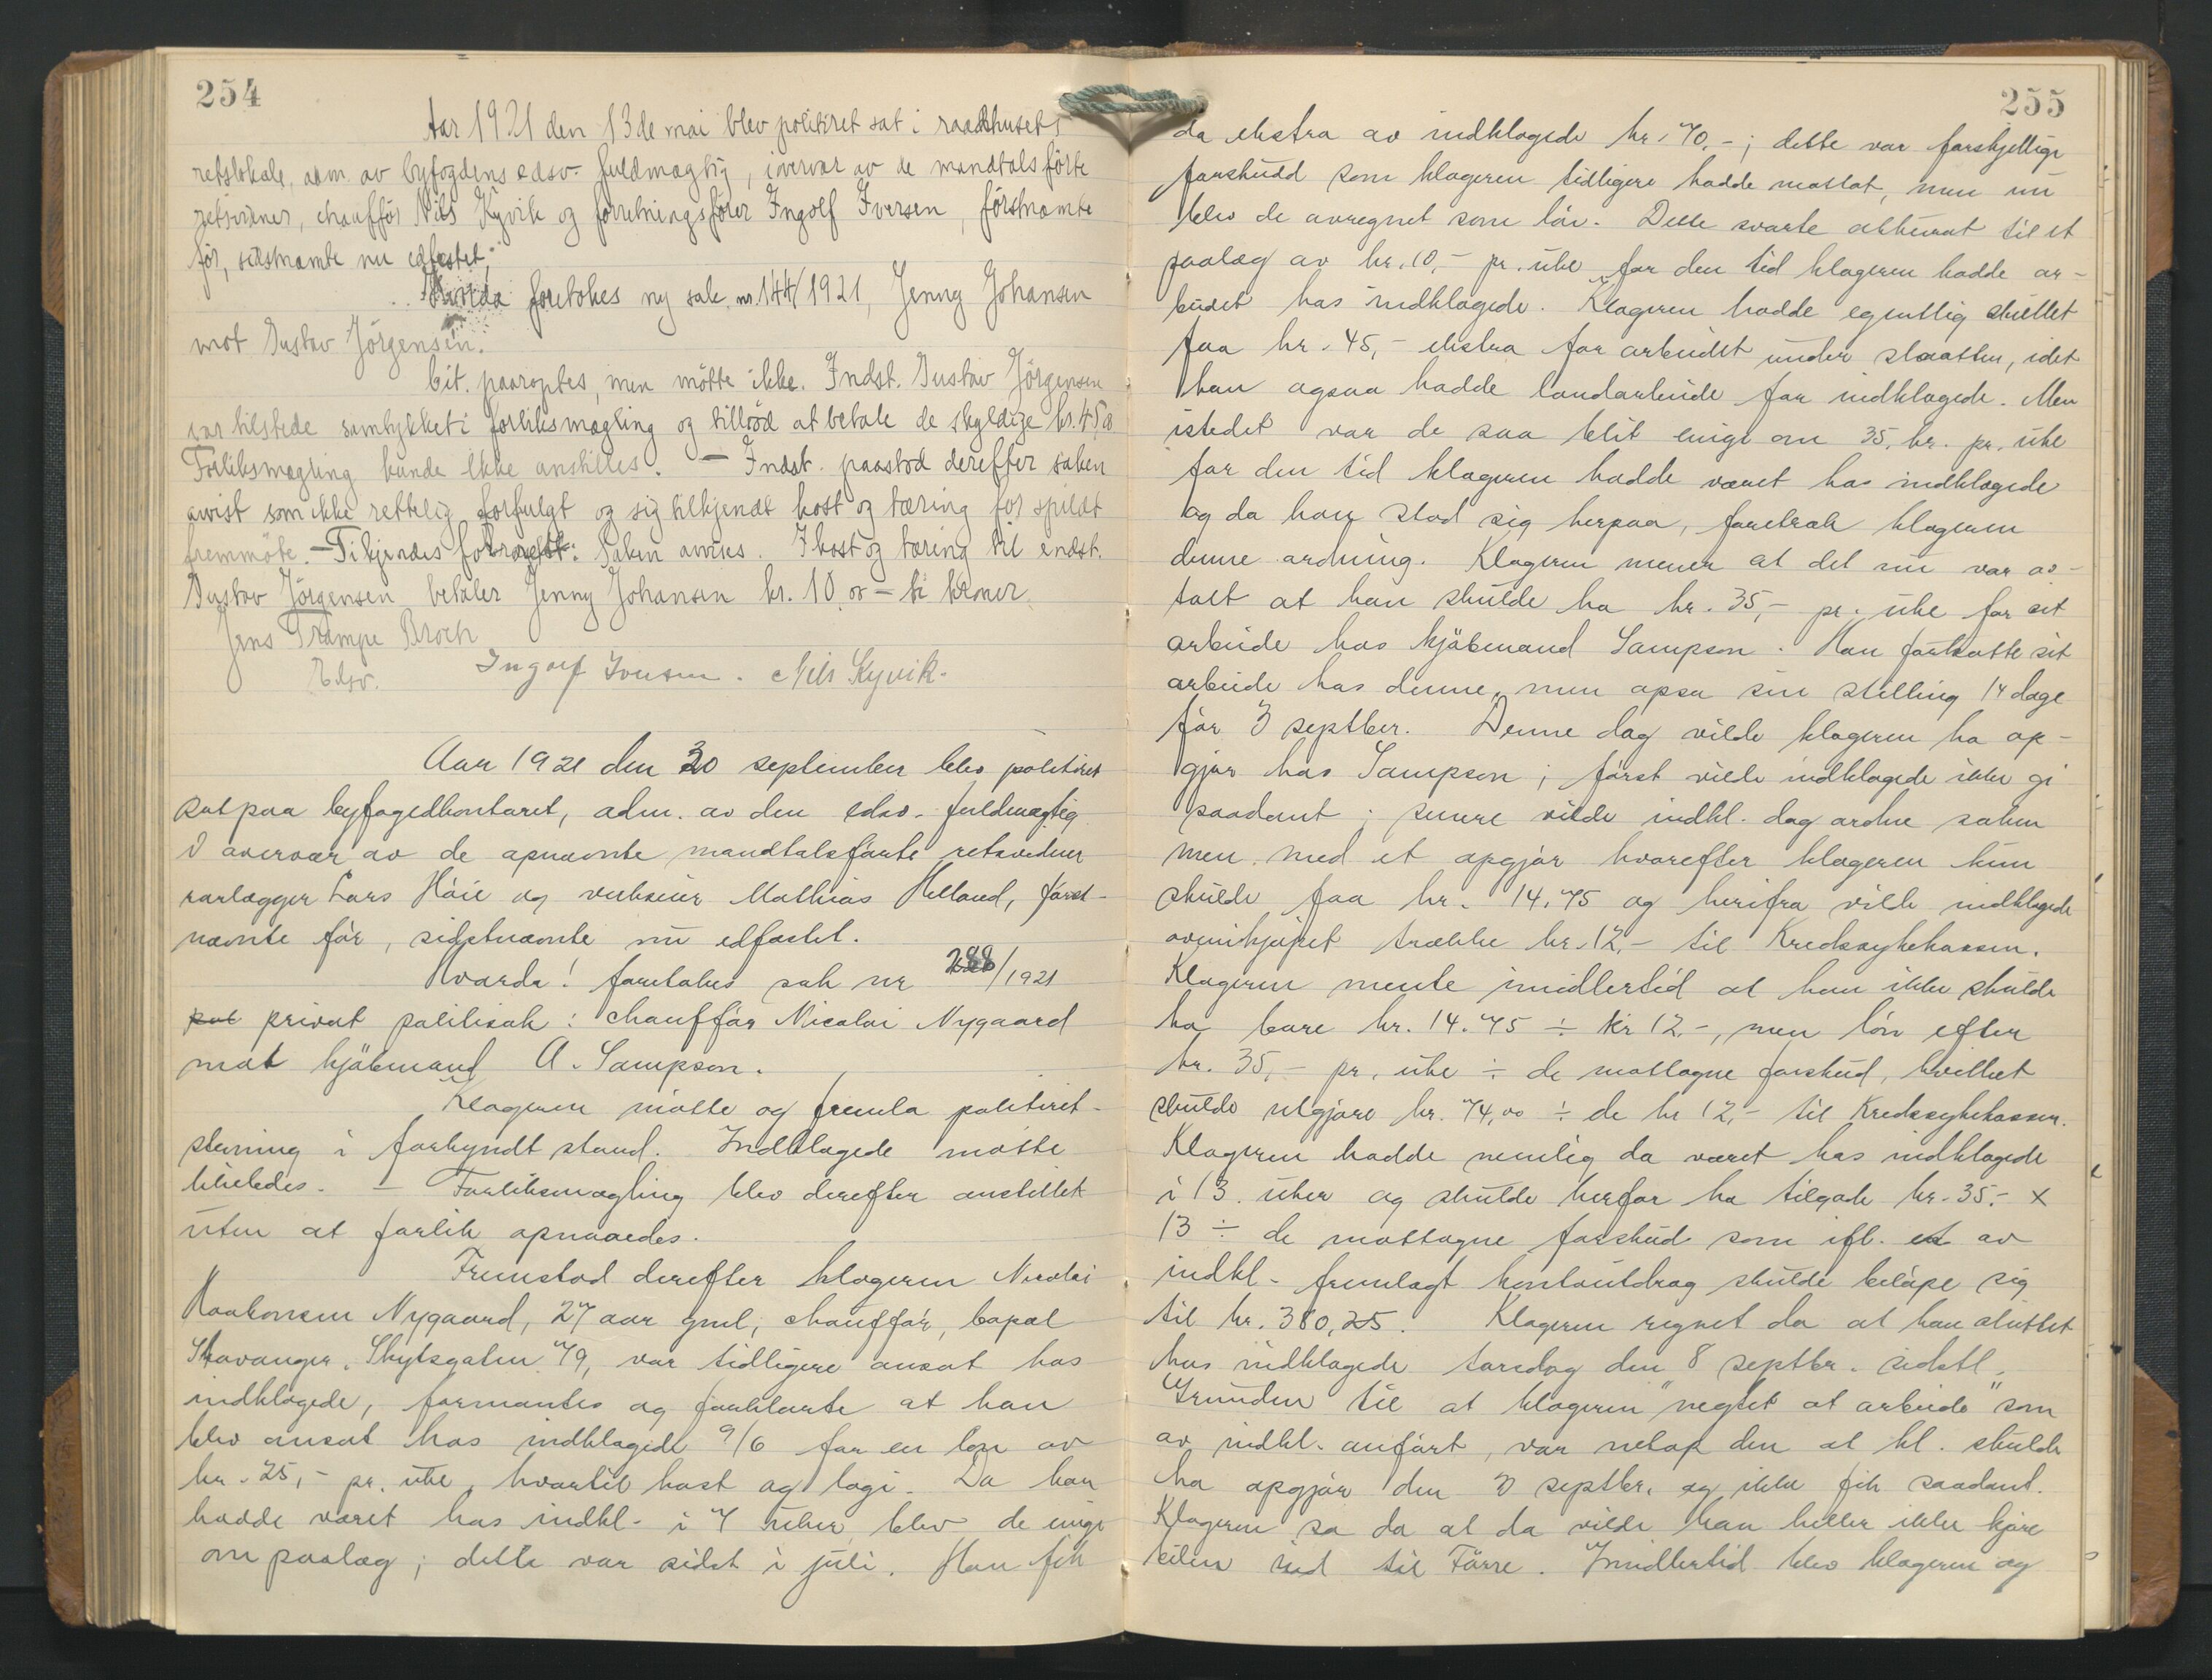 254
Aar 1921 den 13de mai blev politiret sat i raadhusets
retslokale, adm. av byfogdens edsv. fuldmægtig, i overvær av de mandtalsførte
retsvidner, chauffør Nils Kyvik og forretningsfører Ingolf Iversen, førstnævnte
før, sidstnævnte nu edfæstet,
Hvorda foretokes ny sak nr. 144/1921, Jenny Johansen
mot Gustav Jörgensen.
Cit. paaroptes, men mötte ikke. Indst. Gustav Jörgensen
var tilstede samtykket i forliksmægling og tilböd at betale de skyldige kr. 45,00
Forliksmægling kunde ikke anstilles. — Indst. paastod derefter saken
avvist som ikke rettelig forfulgt og sig tilkjendt kost og tæring for spildt
fremmöte. — Ti kjendes for ret: Saken avvises. I kost og tæring til indst.
Gustav Jörgensen betaler Jenny Johansen kr. 10,00 — ti kroner
Jens Trampe Broch
Edsv.
Ingolf Iversen. Nils Kyvik.
Aar 1921 den 30 september blev politiret
sat paa byfogedkontoret, adm. av den edsv. fuldmægtig
i overvær av de opnævnte mandtalsførte retsvidner
rørlægger Lars Høie og Mathias Helland, først-
nævnte før, sidstnævnte nu edfæstet.
Hvorda! foretokes sak nr 288/1921
privat politisak: chauffør Nicolai Nygaard
mot kjøbmand A. Sampson.
Klageren møtte og fremla politiret-
stevning i forkyndt stand. Indklagede møtte
likeledes. — Forliksmægling blev derefter anstillet
uten at forlik opnaaedes.
Fremstod derefter klageren Nicolai
Haakonsen Nygaard, 27 aar gml, chauffør, bopæl
Stavanger, Skytsgaten 79, var tidligere ansat hos
indklagede, formantes og forklarte at han
blev ansat hos indklagede 9/6 for en løn av
kr. 25,- pr. uke, hvortil kost og logi. Da han
hadde været hos indkl. i 7 uker blev de enige
om paalæg; dette var sidst i juli. Han fik
255
da ekstra av indklagede kr. 70.-; dette var forskjellige
forskudd som klageren tidligere hadde mottat, men nu
blev de avregnet som løn. Dette svarte akkurat til et
paalæg av kr. 10,- pr. uke for den tid klageren hadde ar-
beidet hos indklagede. Klageren hadde egentlig skullet
faa kr. 45,- ekstra for arbeidet under slaatten, idet
han ogsaa hadde landarbeide for indklagede. Men
istedet var de saa blit enige om 35 kr. pr. uke
for den tid klageren hadde været hos indklagede
og da han stod sig herpaa, foretrak klageren
denne ordning. Klageren mener at det nu var av-
talt at han skulde ha kr. 35,- pr. uke for sit
arbeide hos kjøbmand Sampson. Han fortsatte sit
arbeide hos denne, men opsa sin stilling 14 dage
før 3 septber. Denne dag vilde klageren ha op-
gjør hos Sampson; først vilde indklagede ikke gi
saadant; senere vilde indkl. dog ordne saken
men med et opgjør hvorefter klageren kun
skulde faa kr. 14.75 og herifra vilde indklagede
ovenikjøpet trække kr. 12.- til Kredssykekassen.
Klageren mente imidlertid at han ikke skulde
ha bare kr. 14.75 ÷ kr 12.-, men løn efter
kr. 35,- pr. uke ÷ de mottagne forskud, hvilket
skulde utgjøre kr. 74,00 ÷ de kr 12,- til Kredssykekassen.
Klageren hadde nemlig da været hos indklagede
i 13 uker og skulde herfor ha tilgode kr. 35.- x
13 ÷ de mottagne forskud som ifl. et av
indkl. fremlagt kontoutdrag skulde beløpe sig
til kr. 380,25. Klageren regnet da at han sluttet
hos indklagede torsdag den 8 septbr. sidstl.
Grunden til at klageren "negtet at arbeide" som
av indkl. anført, var netop den at kl. skulde
ha opgjør den 3 septbr. og ikke fik saadant.
Klageren sa da at da vilde han heller ikke kjøre
bilen ind til Førre. Imidlertid blev klageren og